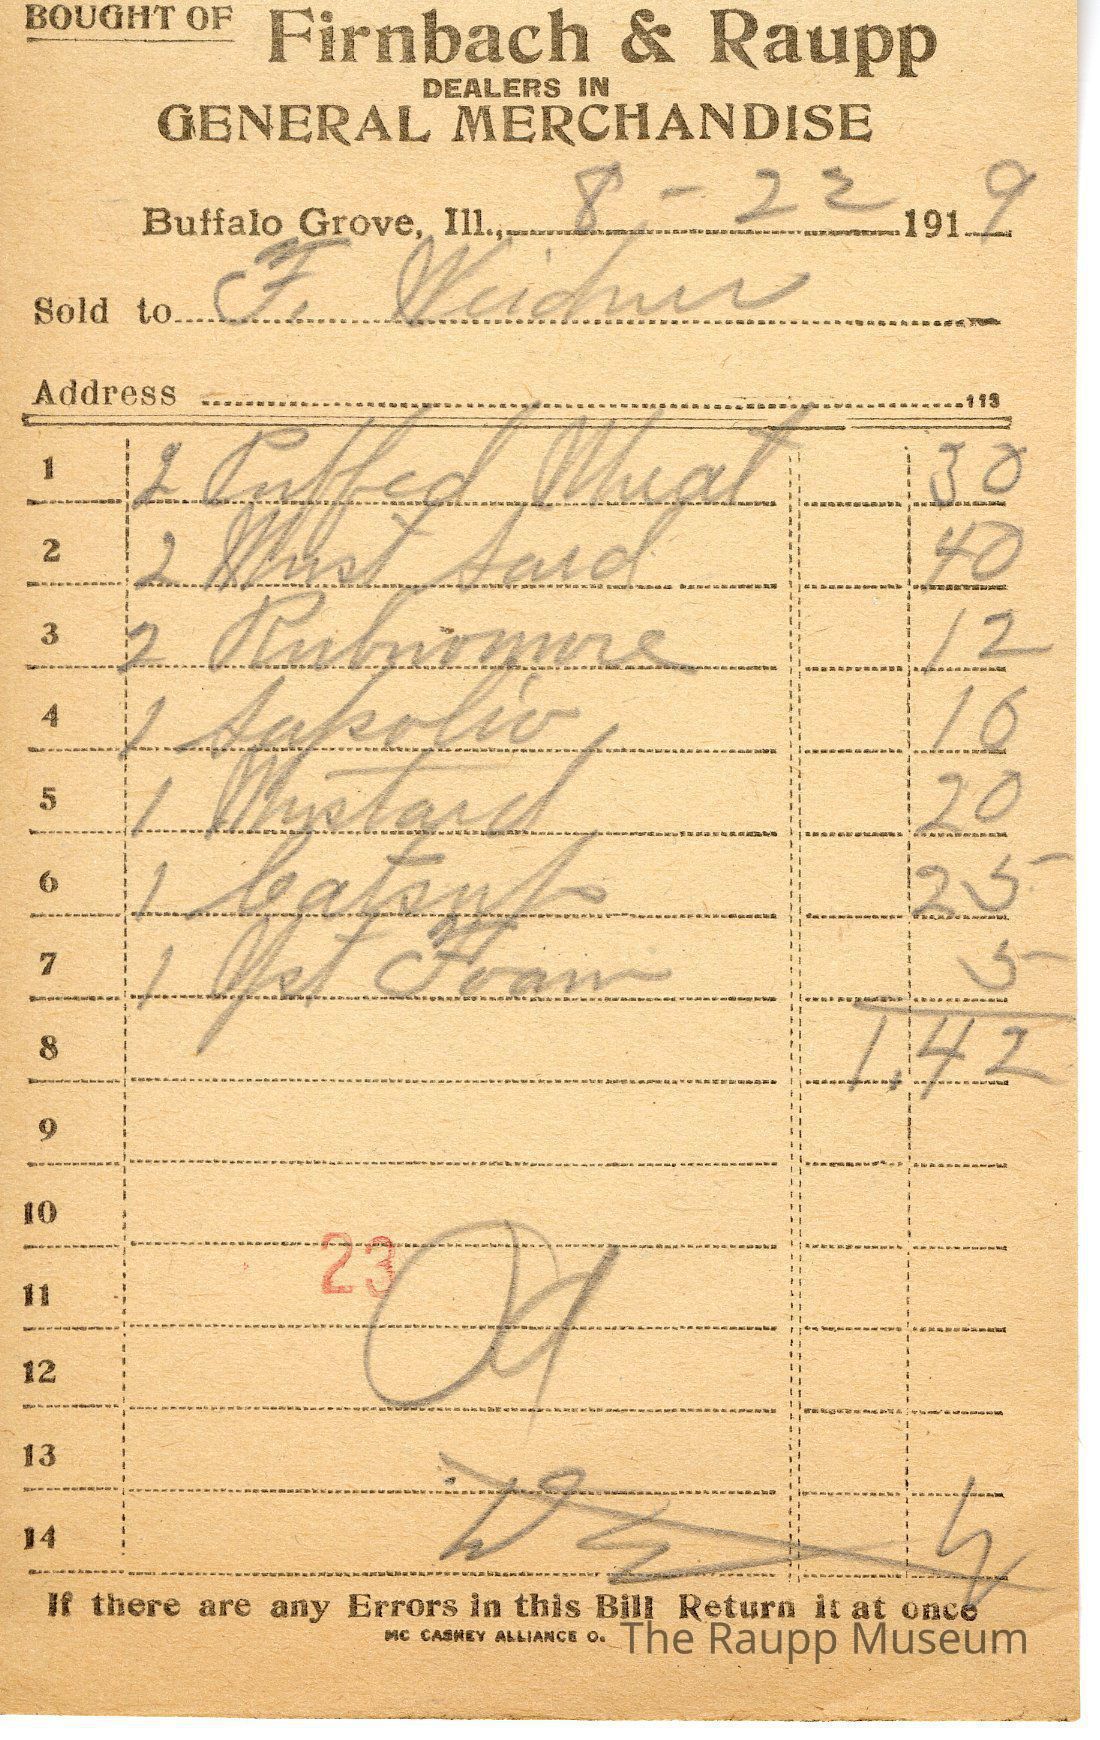 BOUGHT OF Firnbach & Raupp
DEALERS IN
GENERAL MERCHANDISE
Buffalo Grove, Ill., 8-22 1919
Sold to F. Weidner
Address 113
1 2 Puffed Wheat 30
2 2 Must Sard 40
3 2 Rubnomore 12
4 1 Sapolio 10
5 1 Mustard 20
6 1 Catsup 25
7 1 Yst Foam 5
8 1.42
9
10
23
11
12
13
14
If there are any Errors in this Bill Return it at once
MC CASKEY ALLIANCE O.
The Raupp Museum